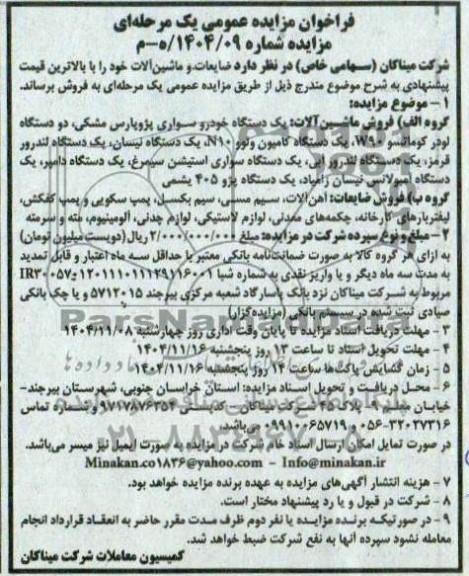 فراخوان مزایده عمومی یک مرحله‌ای
مزایده شماره ۱۴۰۴/۰۹/ه-م
شرکت میناکان (سهامی خاص) در نظر دارد ضایعات و ماشین‌آلات خود را با بالاترین قیمت
پیشنهادی به شرح موضوع مندرج ذیل از طریق مزایده عمومی یک مرحله‌ای به فروش برساند.
۱- موضوع مزایده:
گروه الف) فروش ماشین‌آلات: یک دستگاه خودرو سواری پژوپارس مشکی، دو دستگاه
لودر کوماتسو W۹۰، یک دستگاه کامیون ولوو N۱۰، یک دستگاه نیسان، یک دستگاه لندرور
قرمز، یک دستگاه لندرور آبی، یک دستگاه سواری استیشن سیمرغ، یک دستگاه دامپر، یک
دستگاه آمبولانس نیسان زامیاد، یک دستگاه پژو ۴۰۵ یشمی
گروه ب) فروش ضایعات: آهن‌آلات، سیم مسی، سیم بکسل، پمپ سکویی و پمپ کفکش،
لیفتربارهای کارخانه، چکمه‌های معدنی، لوازم لاستیکی، لوازم چدنی، آلومینیوم، مته و سرمته
۲- مبلغ و نوع سپرده شرکت در مزایده: مبلغ ۲/۰۰۰/۰۰۰/۰۰۰ ریال (دویست میلیون تومان)
به ازای هر گروه کالا به صورت ضمانت‌نامه بانکی معتبر با حداقل سه ماه اعتبار و قابل تمدید
به مدت سه ماه دیگر و یا واریز نقدی به شماره شبا
مربوط به شرکت میناکان نزد بانک پاسارگاد شعبه مرکزی بیرجند ۵۷۱۲۰۱۵ و یا چک بانکی
صیادی ثبت شده در سیستم بانکی (مزایده‌گزار)
۳- مهلت دریافت اسناد مزایده تا پایان وقت اداری روز چهارشنبه ۱۴۰۴/۱۱/۰۸
۴- مهلت تحویل اسناد تا ساعت ۱۳ روز پنجشنبه ۱۴۰۴/۱۱/۱۶
۵- زمان گشایش پاکت‌ها ساعت ۱۴ روز پنجشنبه ۱۴۰۴/۱۱/۱۶
۶- محل دریافت و تحویل اسناد مزایده: استان خراسان جنوبی، شهرستان بیرجند-
خیابان معلم ۹- پلاک ۴۵ شرکت میناکان - کدپستی ۹۷۱۷۸۷۶۳۵۴ و شماره تماس
۰۵۶-۳۲۰۲۷۳۱۶ و ۰۹۹۱۰۰۶۵۷۱۹ می‌باشد.
در صورت تمایل امکان ارسال اسناد خام شرکت در مزایده به صورت ایمیل نیز میسر می‌باشد.
Minakan.co۱۸۳۶@yahoo.com – Info@minakan.ir
۷- هزینه انتشار آگهی‌های مزایده به عهده برنده مزایده خواهد بود.
۸- شرکت در قبول و یا رد پیشنهاد مختار است.
۹- در صورتیکه برنده مزایده یا نفر دوم ظرف مدت مقرر حاضر به انعقاد قرارداد انجام
معامله نشود سپرده آنها به نفع شرکت ضبط خواهد شد.
کمیسیون معاملات شرکت میناکان